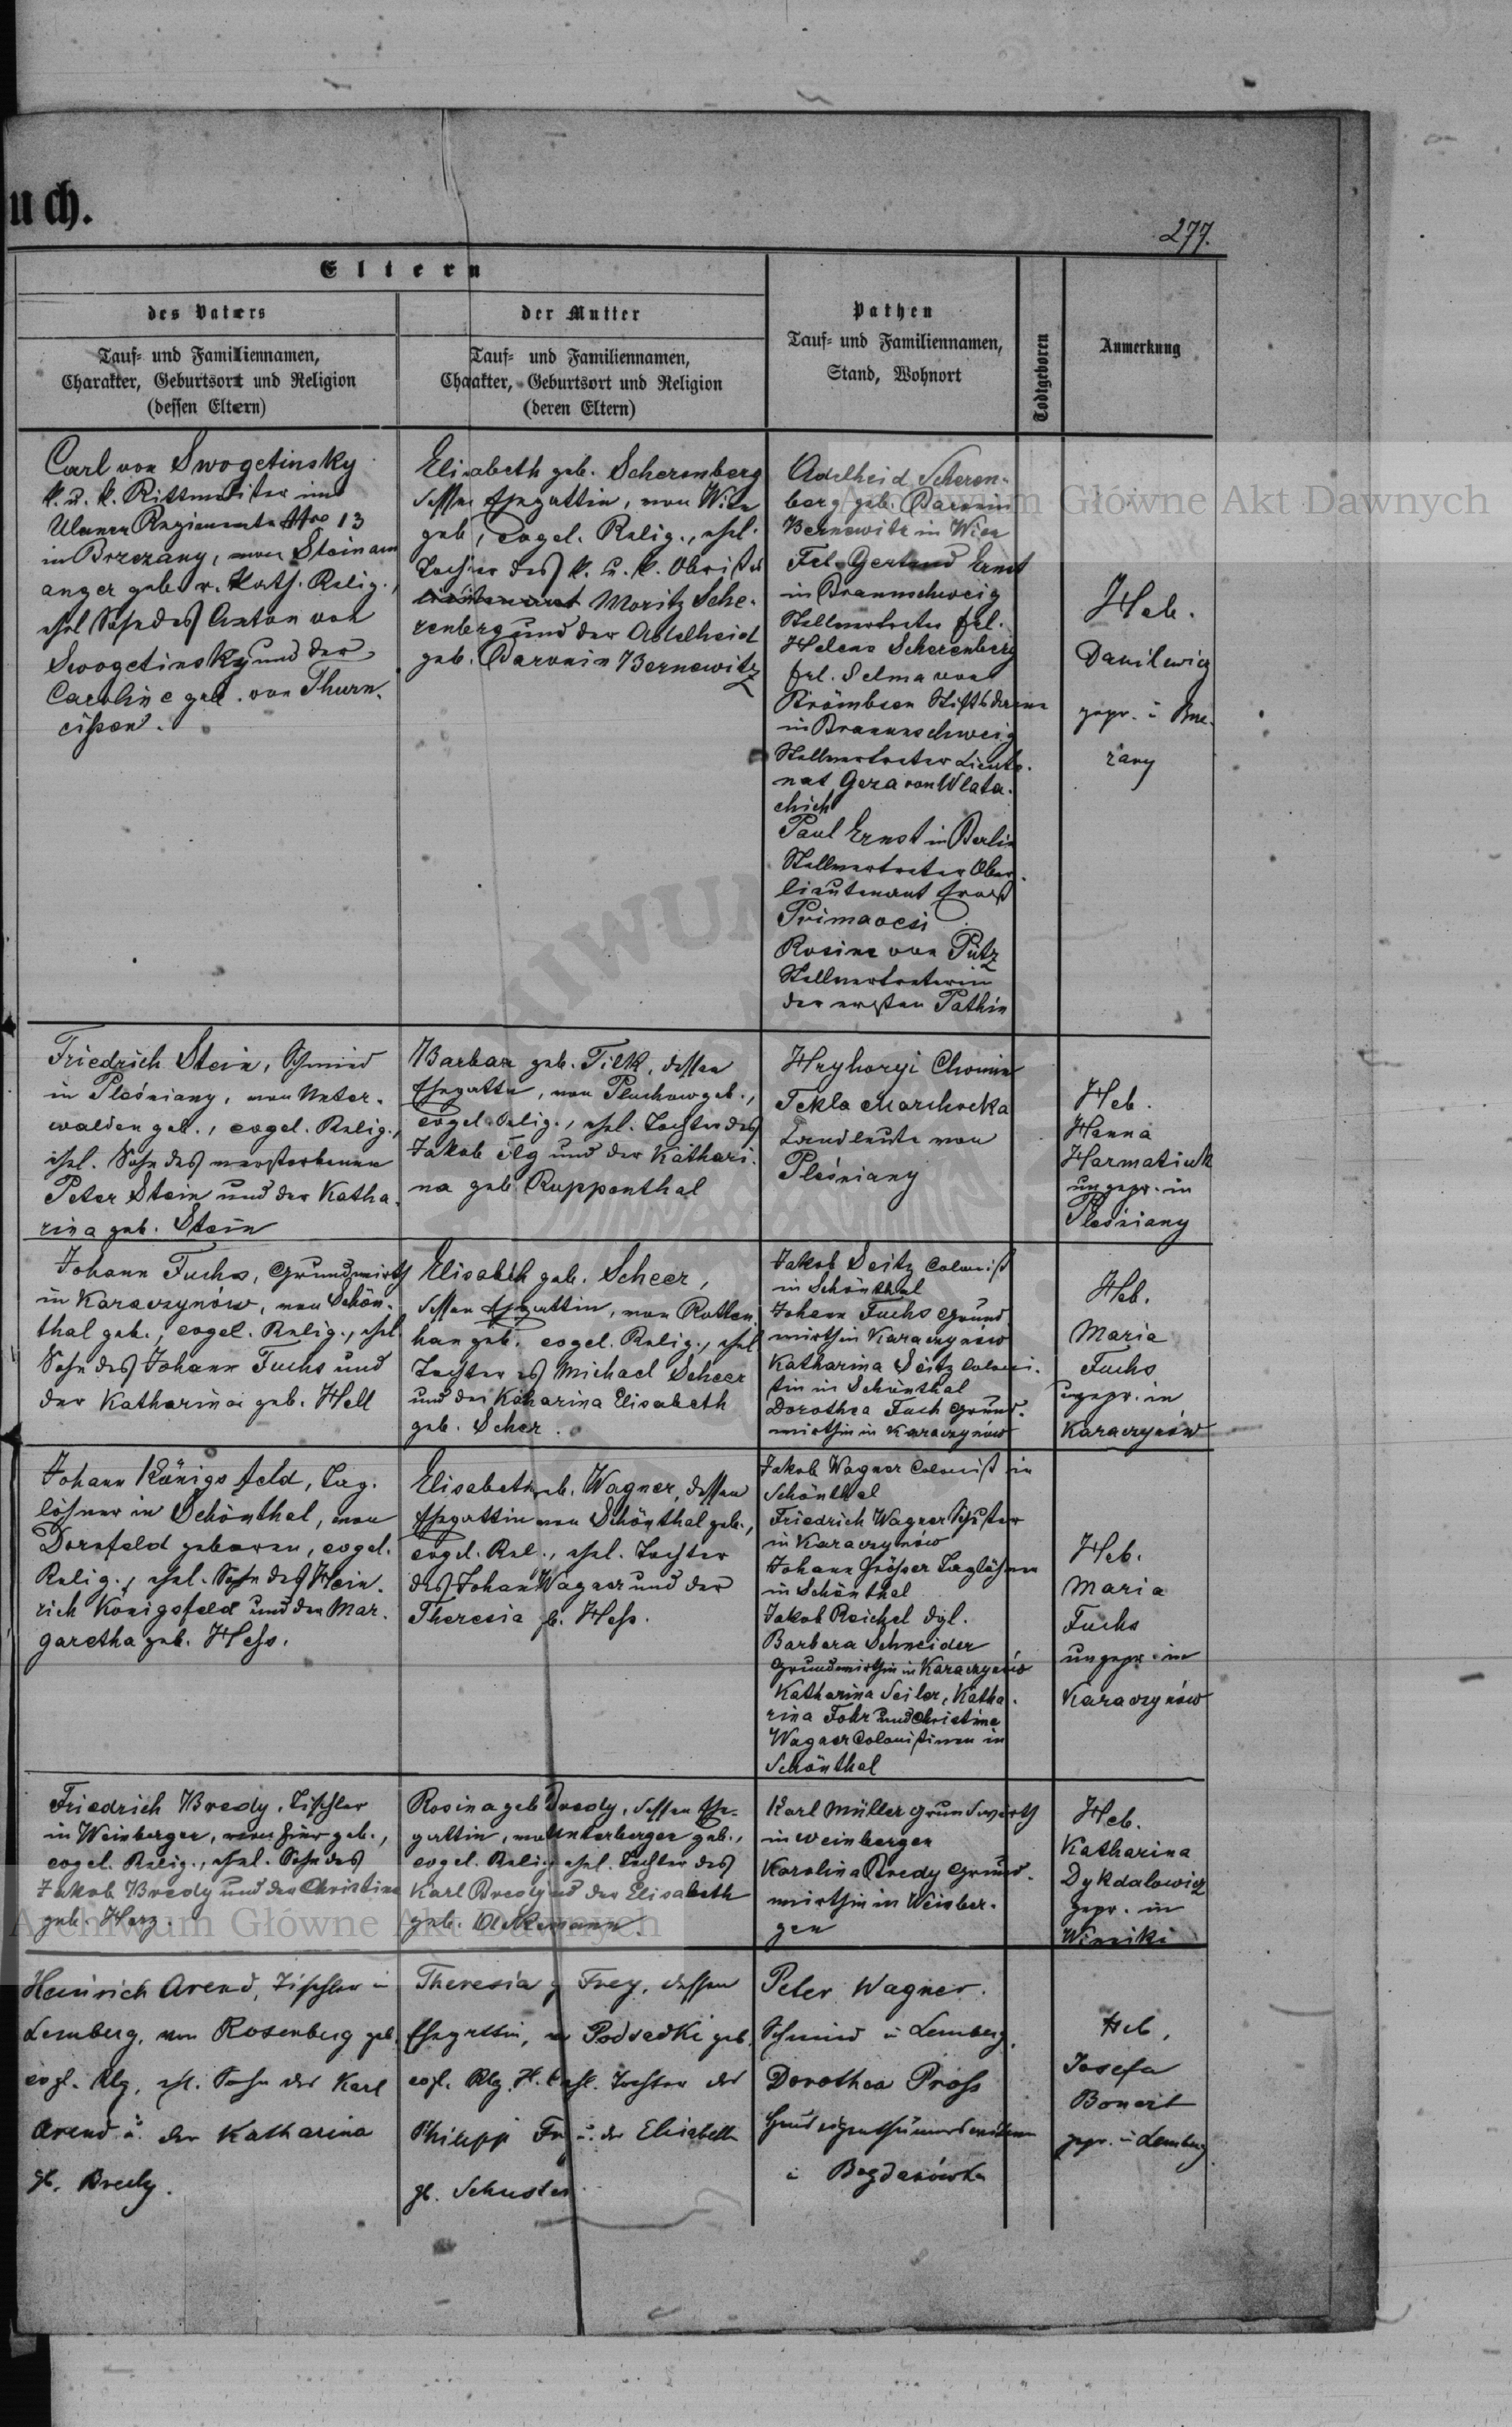 uch.
277.
Eltern
des Vaters
der Mutter
Pathen
Tauf- und Familiennamen,
Stand, Wohnort
Todtgeboren
Anmerkung
Tauf- und Familiennamen,
Charakter, Geburtsort und Religion
(dessen Eltern)
Tauf- und Familiennamen,
Charakter, Geburtsort und Religion
(deren Eltern)
Carl von Swogetinsky
k. u. k. Rittmeister im
Ulanen Regimente Nro 13
in Brzezany, von Steinam
anger geb. r. kath. Relig.,
ehel Sohn des Anton von
Swogetinsky und der
Caroline geb. von Thurn.
Elisabeth geb. Scherenberg
dessen Ehegattin, von Wien
geb, evgel. Relig., ehel.
Tochter des k. u. k. Obrist
Moritz Sche-
renberg und der Adelheid
geb. Baronin Bernewitz
Adelheid Scheren-
berg geb. Baronin
Bernewitz in Wien
Frl. Gertrud Ernst
in Braunschweig
Stellvertreter frl.
Helene Scherenberg
frl. Selma von
Strömbeen Stiftsdame
in Braunschweig
Stellvertreter Lieute-
nat Geza von Wlata-
chich
Paul Ernst in Berlin
Stellvertreter Ober-
lieutenant Ernst
Primavesi
Rosine von Pütz
Stellvertreterin
der ersten Pathin
Heb.
Danilewicz
gepr. i Brze-
zany
Friedrich Stein, Schmied
in Pleśniany, von Unter-
walden geb., evgel. Relig.,
ehel. Sohn des verstorbenen
Peter Stein und der Katha-
rina geb. Stein
Barbar geb. Filk, dessen
Ehegattin, von Pluchow geb.,
evgel. Relig., ehel. Tochter des
Jakob Ilg und der Kathari-
na geb Ruppenthal
Hryhoryi Chomin
Tekla Marchocka
Landleute von
Pleśniany
Heb.
Hanna
Harmatiuk
ungepr. in
Pleśniany
Johann Fuchs, Grundwirth
in Karaczynów, von Schön-
thal geb., evgel. Relig., ehel
Sohn des Johann Fuchs und
der Katharina geb. Hell
Elisabeth geb. Scheer,
dessen Ehegattin, von Rotten
han geb. evgel. Relig., ehel
Tochter es Michael Scheer
und der Katharina Elisabeth
geb. Scher.
Jakob Seitz Colonist
in Schönthal
Johann Fuchs Grund
wirth in Karaczynów
Katharina Seitz Coloni-
stin in Schönthal
Dorothea Fuch Grund-
wirthin in Karaczynów
Heb.
Maria
Fuchs
ungepr. in
Karaczynów
Johann Königsfeld, Tag-
löhner in Schönthal, von
Dornfeld geboren, evgel.
Relig., ehel. Sohn des Hein-
rich Königsfeld und der Mar-
garetha geb. Hess.
Elisabeth geb. Wagner, dessen
Ehegattin von Schönthal geb.,
evgel. Rel., ehel. Tochter
des Johan Wagner und der
Theresia gb. Hess.
Jakob Wagner Colonist in
Schönthal
Friedrich Wagner Schuster
in Karaczynów
Johann Taglöhner
in Schönthal
Jakob Reichel dgl.
Barbara Schneider
Grundwirthin in Karaczynów
Katharina Seiler, Katha-
rina Fohr und Christine
Wagner Colonistinnen in
Schönthal
Heb.
Maria
Fuchs
ungepr. in
Karaczynów
Friedrich Bredy, Tischler
in Weinbergen, von hier geb.,
evgel. Relig., ehel. Sohn des
Jakob Bredy und der Christine
geb. Herz.
Rosina geb Bredy, dessen Ehe-
gattin, von Unterbergen geb.,
evgel. Relig. ehel. Tochter des
Karl Bredy und der Elisabeth
geb. Ackermann.
Karl Müller Grundwirth
in Weinbergen
Karolina Bredy Grund-
wirthin in Weinber-
gen
Heb.
Katharina
Dykdalowicz
gepr. in
Winniki
Heinrich Arend, Tischler in
Lemberg, von Rosenberg geb.
evgl. Rlg, ehl. Sohn des Karl
Arend u. der Katharina
gb. Bredy.
Theresia g Frey, dessen
Ehegattin, v Podsadki geb.
evgl. Rlg. H. C. ehl. Tochter des
Philipp Fr u. der Elisabeth
gb. Schuster.
Peter Wagner.
Schmied in Lemberg,
Dorothea Pross
i Bogdanówka
Heb.
Josefa
Bonert
gepr. in Lemberg
Archiwum Główne Akt Dawnych
Archiwum Główne Akt Dawnych